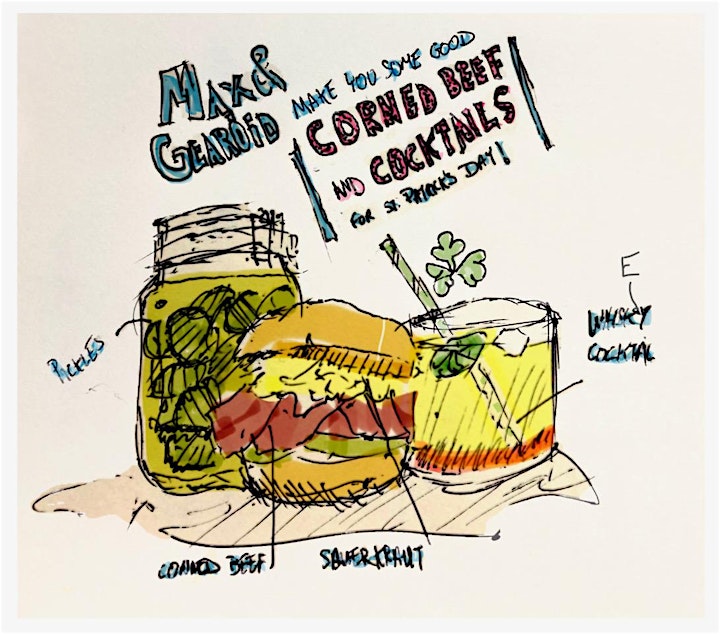 MAX &
GEARÓID
MAKE YOU SOME GOOD
CORNED BEEF
AND COCKTAILS
FOR ST. PATRICK'S DAY!
PICKLES
E
WHISKY
COCKTAIL
CORNED BEEF
SAUERKRAUT